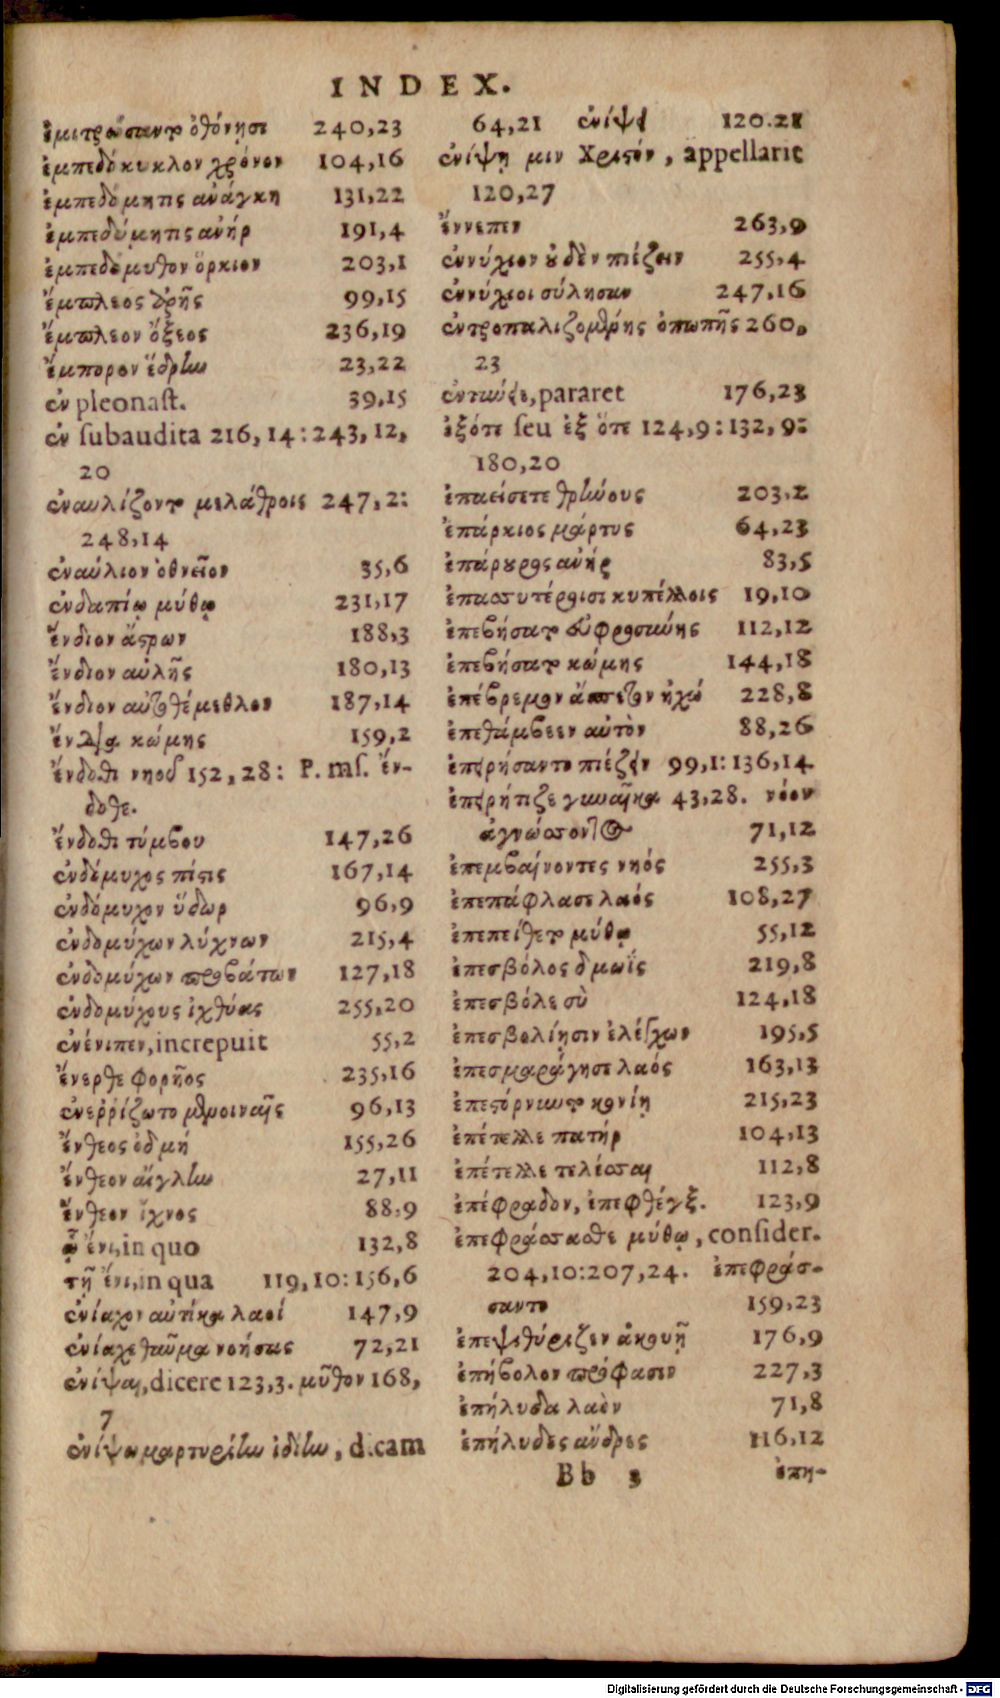 INDEX.
ἐμιτρώσαντο ὀθόνησι 240,23
ἐμπεδόκυκλον χρόνον 104,16
ἐμπεδόμητις ἀνάγκη 131,22
ἐμπεδόμητις ἀνήρ 191,4
ἐμπεδόμυθον ὅρκιον 203,1
ἔμπλεος 99,15
ἔμπλεον ὄξεος 236,19
ἔμπορον ἕδρην 23,22
ἐν pleonast. 39,15
ἐν subaudita 216,14:243,12,
20
ἐναυλίζοντο μελάθροις 247,2:
248,14
ἐναύλιον ὀθνεῖον 35,6
ἐνδαπίῳ μύθῳ 231,17
ἔνδιον ἄστρων 188,3
ἔνδιον αὐλῆς 180,13
ἔνδιον αὐτοθέμεθλον 187,14
κώμης 159,2
ἔνδοθι νηοῦ 152,28: P. ms. ἔν-
δοθε.
ἔνδοθι τύμβου 147,26
ἐνδόμυχος πίστις 167,14
ἐνδόμυχον ὕδωρ 96,9
ἐνδομύχων λύχνων 215,4
ἐνδομύχων προβάτων 127,18
ἐνδομύχους ἰχθύας 255,20
ἐνένιπεν, increpuit 55,2
ἔνερθε φορῆος 235,16
ἐνεῤῥίζωτο μενοιναῖς 96,13
ἔνθεος ὀδμή 155,26
ἔνθεον αἴγλην 27,11
ἔνθεον ἴχνος 88,9
ᾧ ἔνι, in quo 132,8
τῇ ἔνι, in qua 119,10:156,6
ἐνίαχον αὐτίκα λαοί 147,9
ἐνίαχε θαῦμα νοήσας 72,21
ἐνίψαι, dicere 123,3. μῦθον 168,
7
ἐνίψω μαρτυρίην ἰδίην, dicam
64,21 ἐνίψει 120.21
ἐνίψῃ μιν Χριστόν, appellarit
120,27
ἔννεπεν 263,9
ἐννύχιον οὐδὲν πιέζειν 255,4
ἐννύχιοι σύλησαν 247,16
ἐντροπαλιζομένης ὀπωπῆς 260,
23
ἐντύνει, pararet 176,23
ἐξότε seu ἐξ ὅτε 124,9:132,9:
180,20
ἐπαείσετε θρήνους 203,2
ἐπάρκιος μάρτυς 64,23
ἐπάρουρος ἀνήρ 83,5
ἐπασσυτέροισι κυπέλλοις 19,10
ἐπεβήσατο εὐφροσύνης 112,12
ἐπεβήσατο κώμης 144,18
ἐπέβρεμον ἄσπετον ἠχώ 228,8
ἐπεθάμβεεν αὐτὸν 88,26
ἐπειρήσαντο πιέζειν 99,1:136,14
ἐπειρήτιζε γυναῖκα 43,28. νόον
ἀγνώσσοντος 71,12
ἐπεμβαίνοντες νηός 255,3
ἐπεπάφλασε λαός 108,27
ἐπεπείθετο μύθῳ 55,12
ἐπεσβόλος δμωΐς 219,8
ἐπεσβόλε σὺ 124,18
ἐπεσβολίῃσιν ἐλέγχων 195,5
ἐπεσμαράγησε λαός 163,13
ἐπεστόρνυντο κονίῃ 215,23
ἐπέτελλε πατήρ 104,13
ἐπέτελλε τελέσσαι 112,8
ἐπέφραδον, ἐπεφθέγξ. 123,9
ἐπεφράσσασθε μύθῳ, consider.
204,10:207,24. ἐπεφράσ-
σαντο 159,23
ἐπεψιθύριζεν ἀκουῇ 176,9
ἐπήβολον πρόφασιν 227,3
ἐπήλυδα λαὸν 71,8
ἐπήλυδες ἄνδρες 116,12
Bb 3 ἐπη-
Digitalisierung gefördert durch die Deutsche Forschungsgemeinschaft - DFG